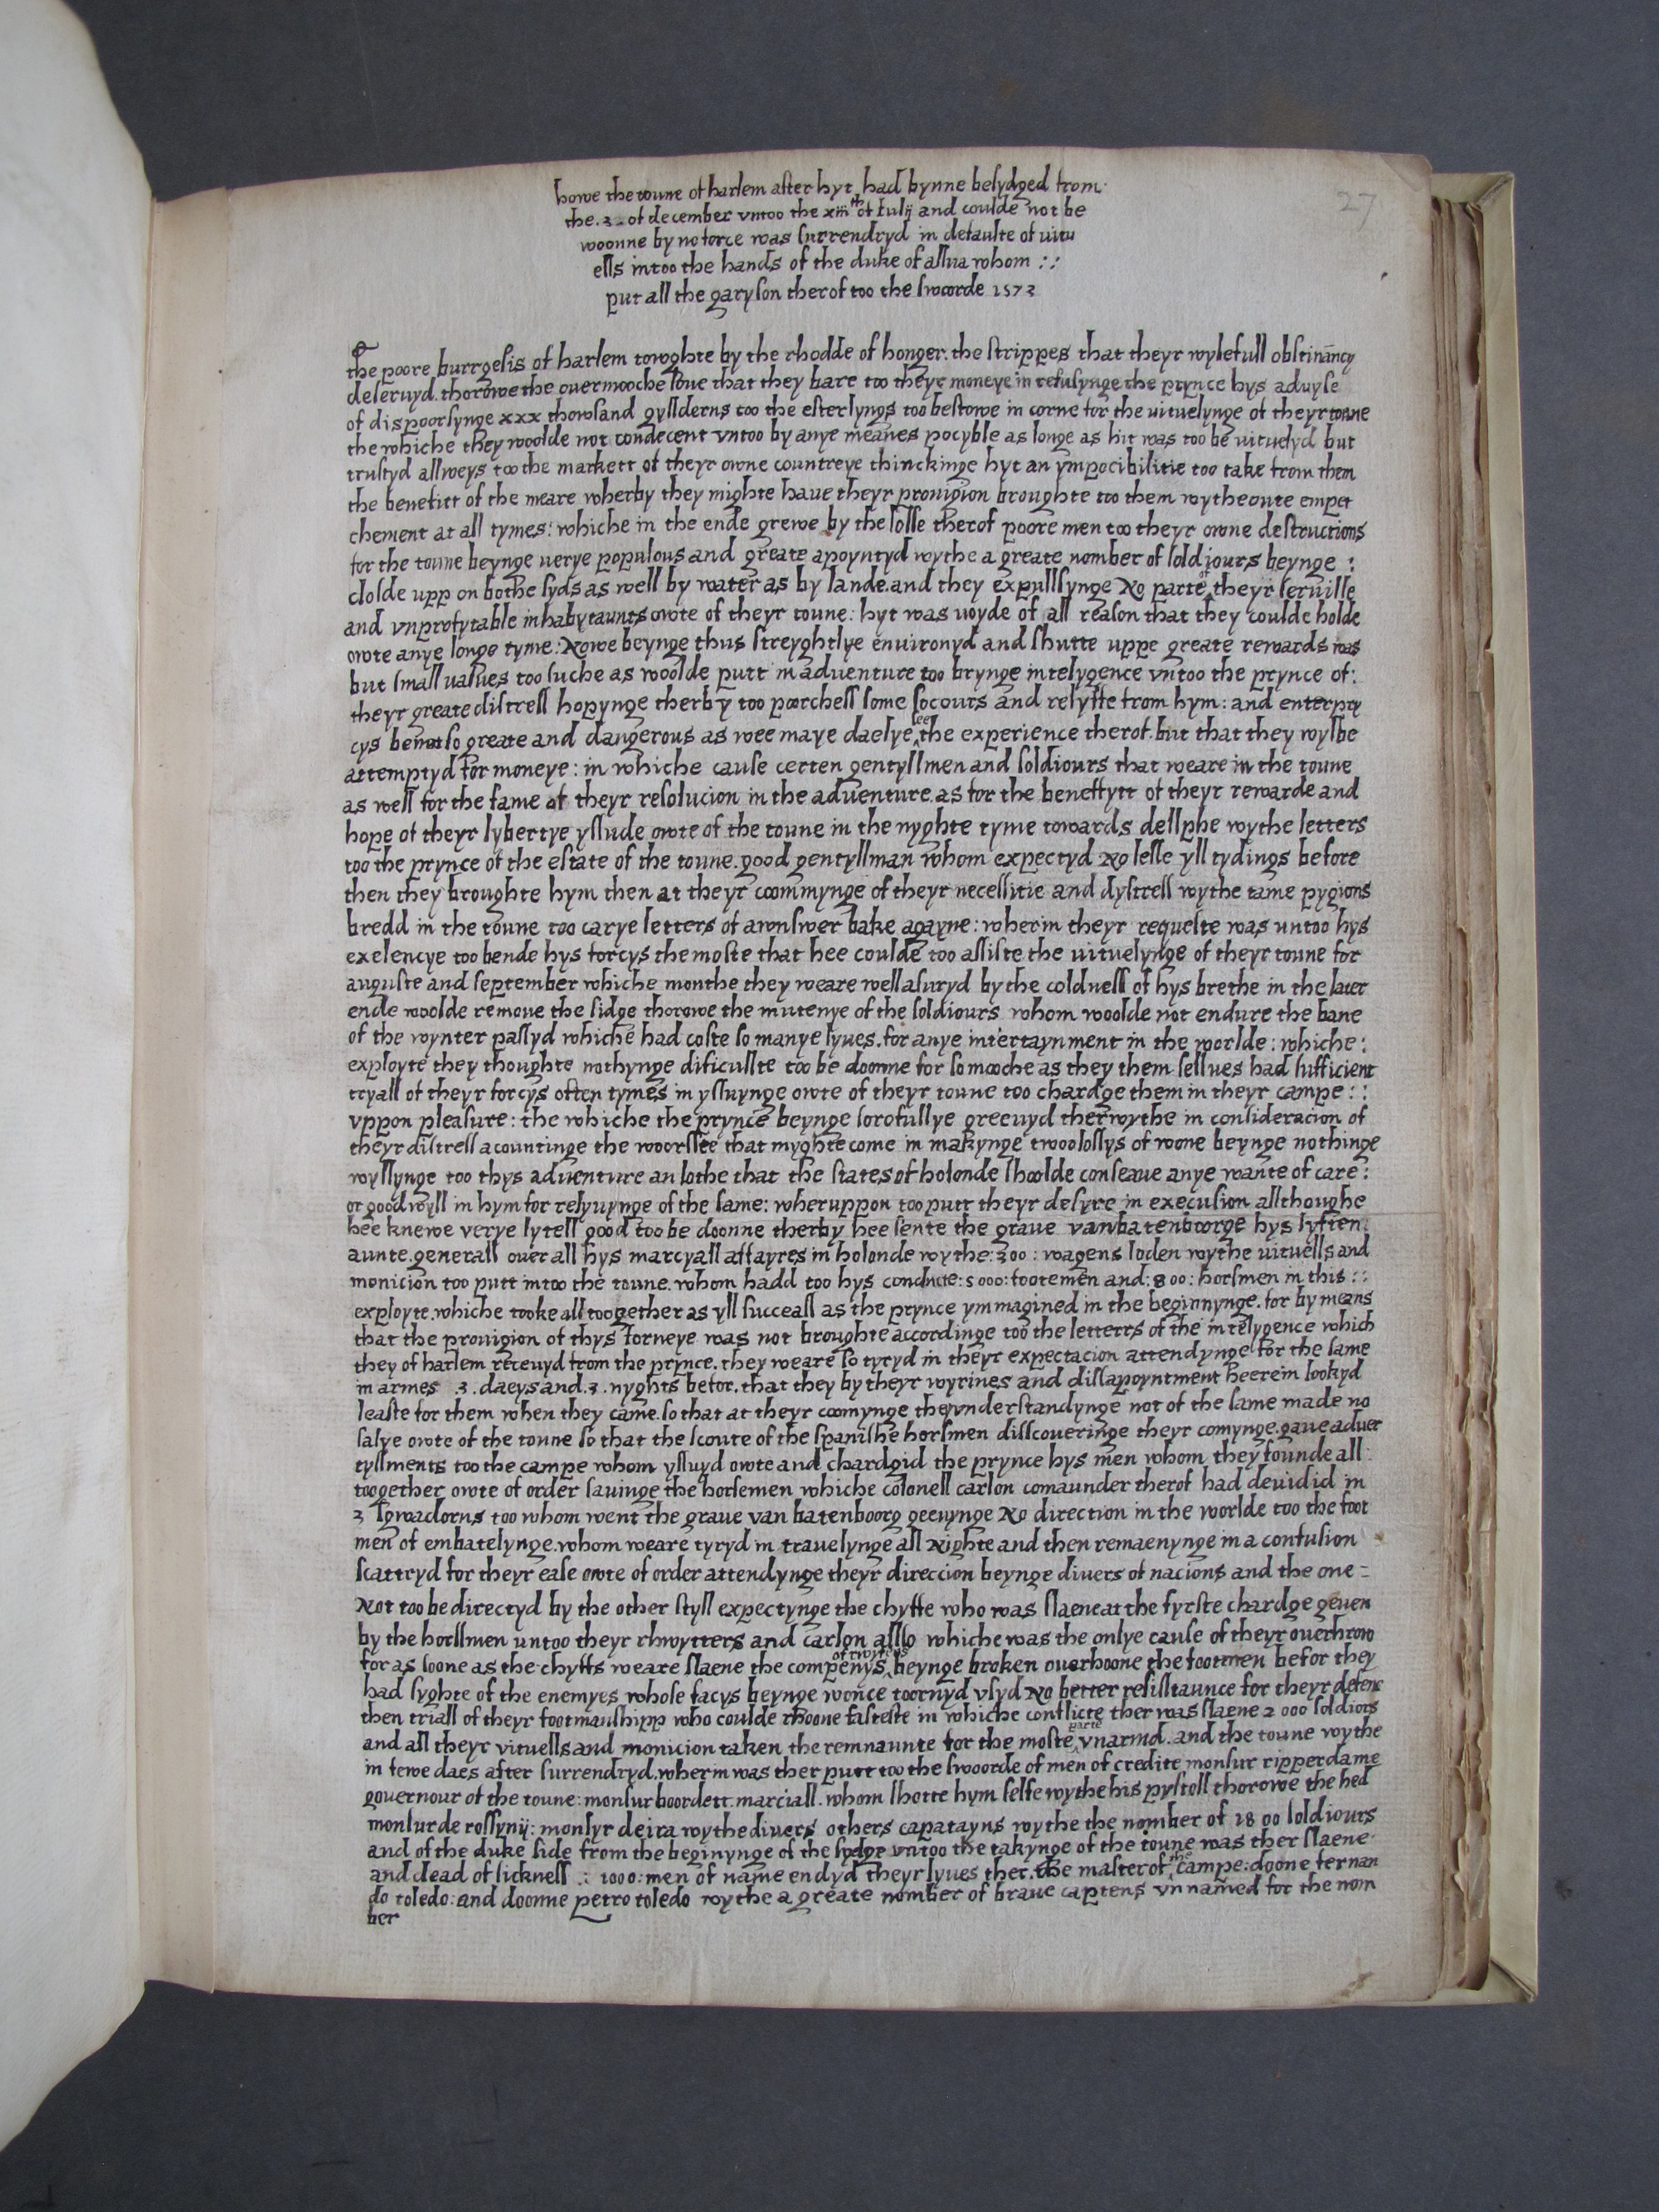 27
howe the toune of harlem after hyt had bynne besydged from
the .3. of december vntoo the xiijth of Iulij and coulde not be
woonne by no force was surrendryd in defaulte of uitu
ells intoo the hands of the duke of allua whom ::
put all the garyson therof too the swoorde 1573
The poore burrgesis of harlem towghte by the rhodde of honger. the strippes that theyr wylefull obstinancy
deseruyd. thorowe the ouermooche loue that they bare too theyr moneye in refusynge the prynce hys aduyse
of dispoorsynge xxx thowsand gyllderns too the esterlyngs too bestowe in corne for the uituelynge of theyr toune
the whiche they woolde not condecent vntoo by anye meanes pocyble as longe as hit was too be uituelyd but
trustyd allweys too the markett of theyr owne countreye thinckinge hyt an ympocibilitie too take from them
the benefitt of the meare wherby they mighte haue theyr prouigion broughte too them wytheoute empet
chement at all tymes: whiche in the ende grewe by the losse therof poore men too theyr owne destructions
for the toune beynge uerye populous and greate apoyntyd wythe a greate nomber of soldjours beynge :
closde upp on bothe syds as well by water as by lande. and they expullsynge No parte of theyr seruille
and vnprofytable inhabytaunts owte of theyr toune: hyt was uoyde of all reason that they coulde holde
owte anye longe tyme: Nowe beynge thus streyghtlye enuironyd and shutte uppe greate rewards was
but small ualues too suche as woolde putt in aduenture too brynge intelygence vntoo the prynce of:
theyr greate distress hopynge therby too poorchess some socours and relyffe from hym: and enterpry
cys be not so greate and dangerous as wee maye daelye see the experience therof. but that they wylbe
attemptyd for moneye: in whiche cause certen gentyllmen and soldiours that weare in the toune
as well for the fame of theyr resolucion in the aduenture. as for the beneffytt of theyr rewarde and
hope of theyr lybertye yssude owte of the toune in the nyghte tyme towards dellphe wythe letters
too the prynce of the estate of the toune. good gentyllman whom expectyd No lesse yll tydings before
then they broughte hym then at theyr coommynge of theyr necessitie and dystress wythe tame pygions
bredd in the toune too carye letters of awnswer bake agayne: wherin theyr requeste was untoo hys
exelencye too bende hys forcys the moste that hee coulde too assiste the uituelynge of theyr toune for
auguste and september whiche monthe they weare well asuryd by the coldness of hys brethe in the later
ende woolde remoue the sidge thorowe the mutenye of the soldiours whom woolde not endure the bane
of the wynter passyd whiche had coste so manye lyues. for anye intertaynment in the worlde: whiche:
exployte they thoughte nothynge dificullte too be doonne for so mooche as they them sellues had sufficient
tryall of theyr forcys often tymes in yssuynge owte of theyr toune too chardge them in theyr campe ::
vppon pleasure: the whiche the prynce beynge sorofullye greeuyd therwythe in consideracion of
theyr distress acountinge the woorste that myghte come in makynge twoo lossys of woone beynge nothinge
wyllynge too thys aduenture an lothe that the states of holonde shoolde conseaue anye wante of care:
or good wyll in hym for relyuynge of the same: wheruppon too putt theyr desyre in execusion allthoughe
hee knewe verye lytell good too be doonne therby hee sente the graue vanbatenboorge hys lyften
aunte. generall ouer all hys marcyall affayres in holonde wythe: 300: wagens loden wythe uituells and
monicion too putt intoo the toune. whom hadd too hys conducte: 5000: footemen and: 800: horsmen in this ::
exployte. whiche tooke all toogether as yll succeass as the prynce ymmagined in the beginnynge. for by means
that the prouigion of thys Iorneye was not broughte accordinge too the letterrs of the intelygence which
they of harlem receuyd from the prynce. they weare so tyryd in theyr expectacion attendynge for the same
in armes .3. daeys and .3. nyghts befor. that they by theyr wyrines and dissapoyntment heerein lookyd
leaste for them when they came. so that at theyr coomynge they vnderstandynge not of the same made no
salye owte of the toune so that the scoute of the spanishe horsmen disscoueringe theyr comynge. gaue aduer
tyssments too the campe whom yssuyd owte and chardgid the prynce hys men whom they founde all:
toogether owte of order sauinge the horsemen whiche colonell carlon comaunder therof had deuidid in
3 sqwadorns too whom went the graue van batenboorg geeuynge No direction in the worlde too the foot
men of embatelynge. whom weare tyryd in trauelynge all Nighte and then remaenynge in a confusion
scattryd for theyr ease owte of order attendynge theyr direccion beynge diuers of nacions and the one =
Not too be directyd by the other styll expectynge the chyffe who was slaene at the fyrste chardge geuen
by the horssmen untoo theyr rhwytters and carlon allso whiche was the onlye cause of theyr ouerthrow
for as soone as the chyffs weare slaene the compenys of rwytters beynge broken ouerhoone the footmen befor they
had syghte of the enemyes whose facys beynge wonce toornyd vsyd No better resisstaunce for theyr defenc
then triall of theyr footmanshipp who coulde rhoone fasteste in whiche conflicte ther was slaene 2000 soldiors
and all theyr vituells and monicion taken the remnaunte for the moste parte vnarmd. and the toune wythe
in fewe daes after surrendryd. wherin was ther putt too the swoorde of men of credite monsur ripperdame
gouernour of the toune: monsur boordett marciall. whom shotte hym selfe wythe his pystoll thorowe the hed
monsur de rossynij: monsyr deira wythe diuers others capatayns wythe the nomber of 1800 soldiours
and of the duke side from the beginynge of the sydge vntoo the takynge of the toune was ther slaene
and dead of sickness .: 1000: men of name endyd theyr lyues ther. the master of the campe: doone fernan
do toledo: and doonne petro toledo wythe a greate nomber of braue captens vnnamed for the nom
ber